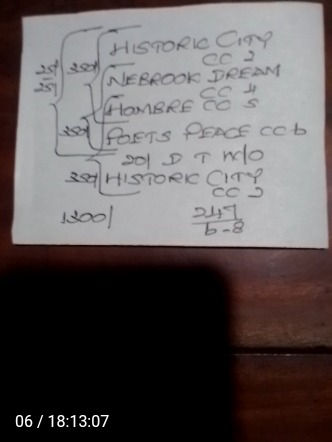 HISTORIC CITY
CC 2
NEBROOK DREAM
CC 4
HOMBRE CC 5
POETS PEACE CC 6
20/ D T w/o
HISTORIC CITY
CC 2
1200/
247
6-8
06 / 18:13:07